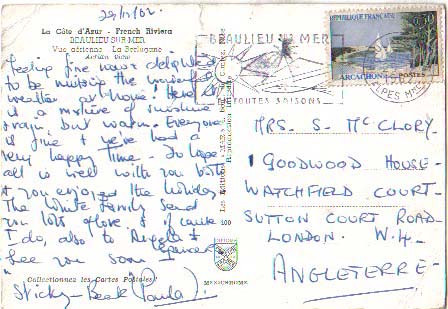 29/11/62.
La Côte d'Azur - French Riviera
BEAULIEU SUR MER
Vue aérienne - La Berlugane
Aerian View
Feeling fine now & delighted
to be missing the wonderful
weather at home! Here it
is a mixture of sunshine
& rain, but warm. Everyone
is fine & we've had a
very happy time - Do hope
all is well with you both
& you enjoyed the
The White Family Send
you lots of love & of course
I do, also to Angela &
See you soon!
Sticky-Beak (Paula)
Collectionnez les Cartes Postales
MEXICHROME
100
BEAULIEU S/ MER
TOUTES SAISONS
REPUBLIQUE FRANÇAISE
ARCACHON
POSTES
ALPES MMES
MRS. S. McCLORY.
1 GOODWOOD HOUSE-
WATCHFIELD COURT-
SUTTON COURT ROAD-
LONDON. W.4.
ANGLETERRE-